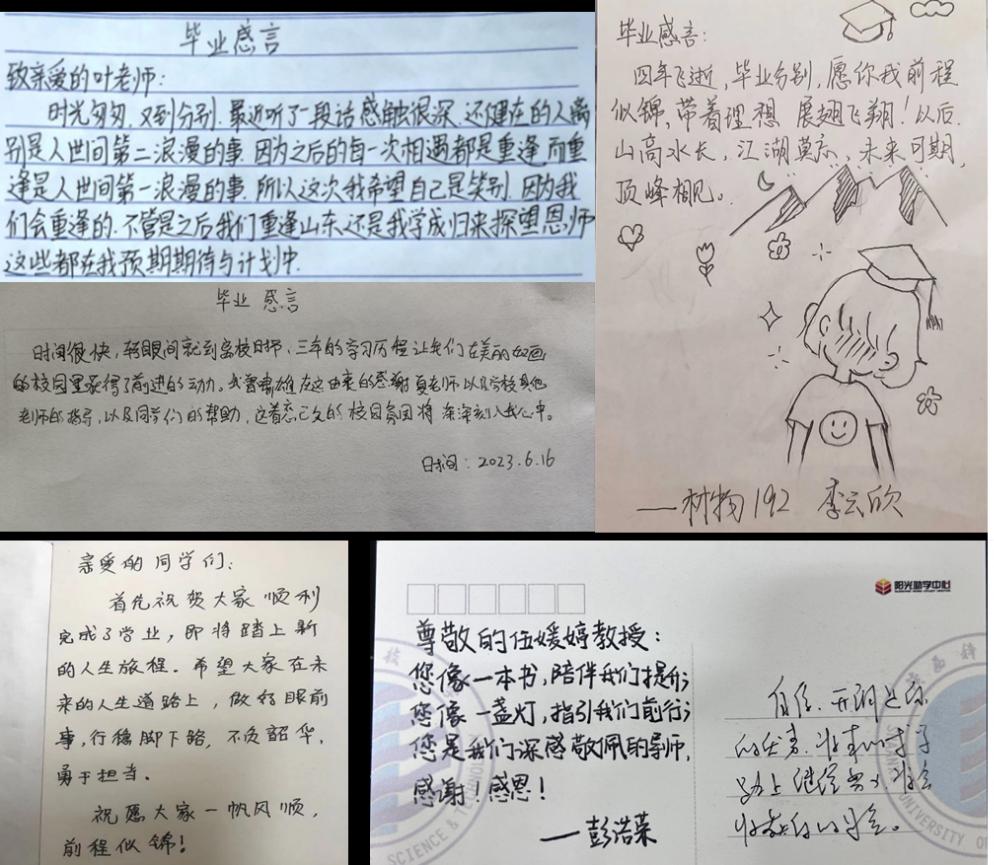 毕业感言
致亲爱的叶老师：
时光匆匆，又到分别.最近听了一段话感触很深.还健在的人离
别是人世间第二浪漫的事.因为之后的每一次相遇都是重逢，而重
逢是人世间第一浪漫的事.所以这次我希望自己是笑别.因为我
们会重逢的.不管是之后我们重逢山东，还是我学成归来探望恩师
这些都在我预期期待与计划中.
毕业感言：
四年飞逝，毕业分别，愿你我前程
似锦，带着理想 展翅飞翔！以后，
山高水长，江湖莫忘，未来可期，
顶峰相见。
——材物192 李云欣
毕业 感言
时间很快，转眼间就到离校时，三年的学习历程让我们在美丽如画
的校园里获得了前进的动力。我 在这由衷的感谢夏老师以及学校其他
老师的指导，以及同学们的帮助，这 的校园氛围将深深刻入我心中。
时间：2023.6.16
亲爱的同学们：
首先祝贺大家顺利
完成了学业，即将踏上新
的人生旅程。希望大家在未
来的人生道路上，做好眼前
事，行稳脚下路，不负韶华，
勇于担当。
祝愿大家一帆风顺，
前程似锦！
阳光助学中心
尊敬的伍媛婷教授：
您像一本书，陪伴我们提升；
您像一盏灯，指引我们前行；
您是我们深感敬佩的导师，
感谢！感恩！
——彭浩荣
自信、开朗是你
的优势，
路上继续努力，
SCIENCE &
UNIVERSITY